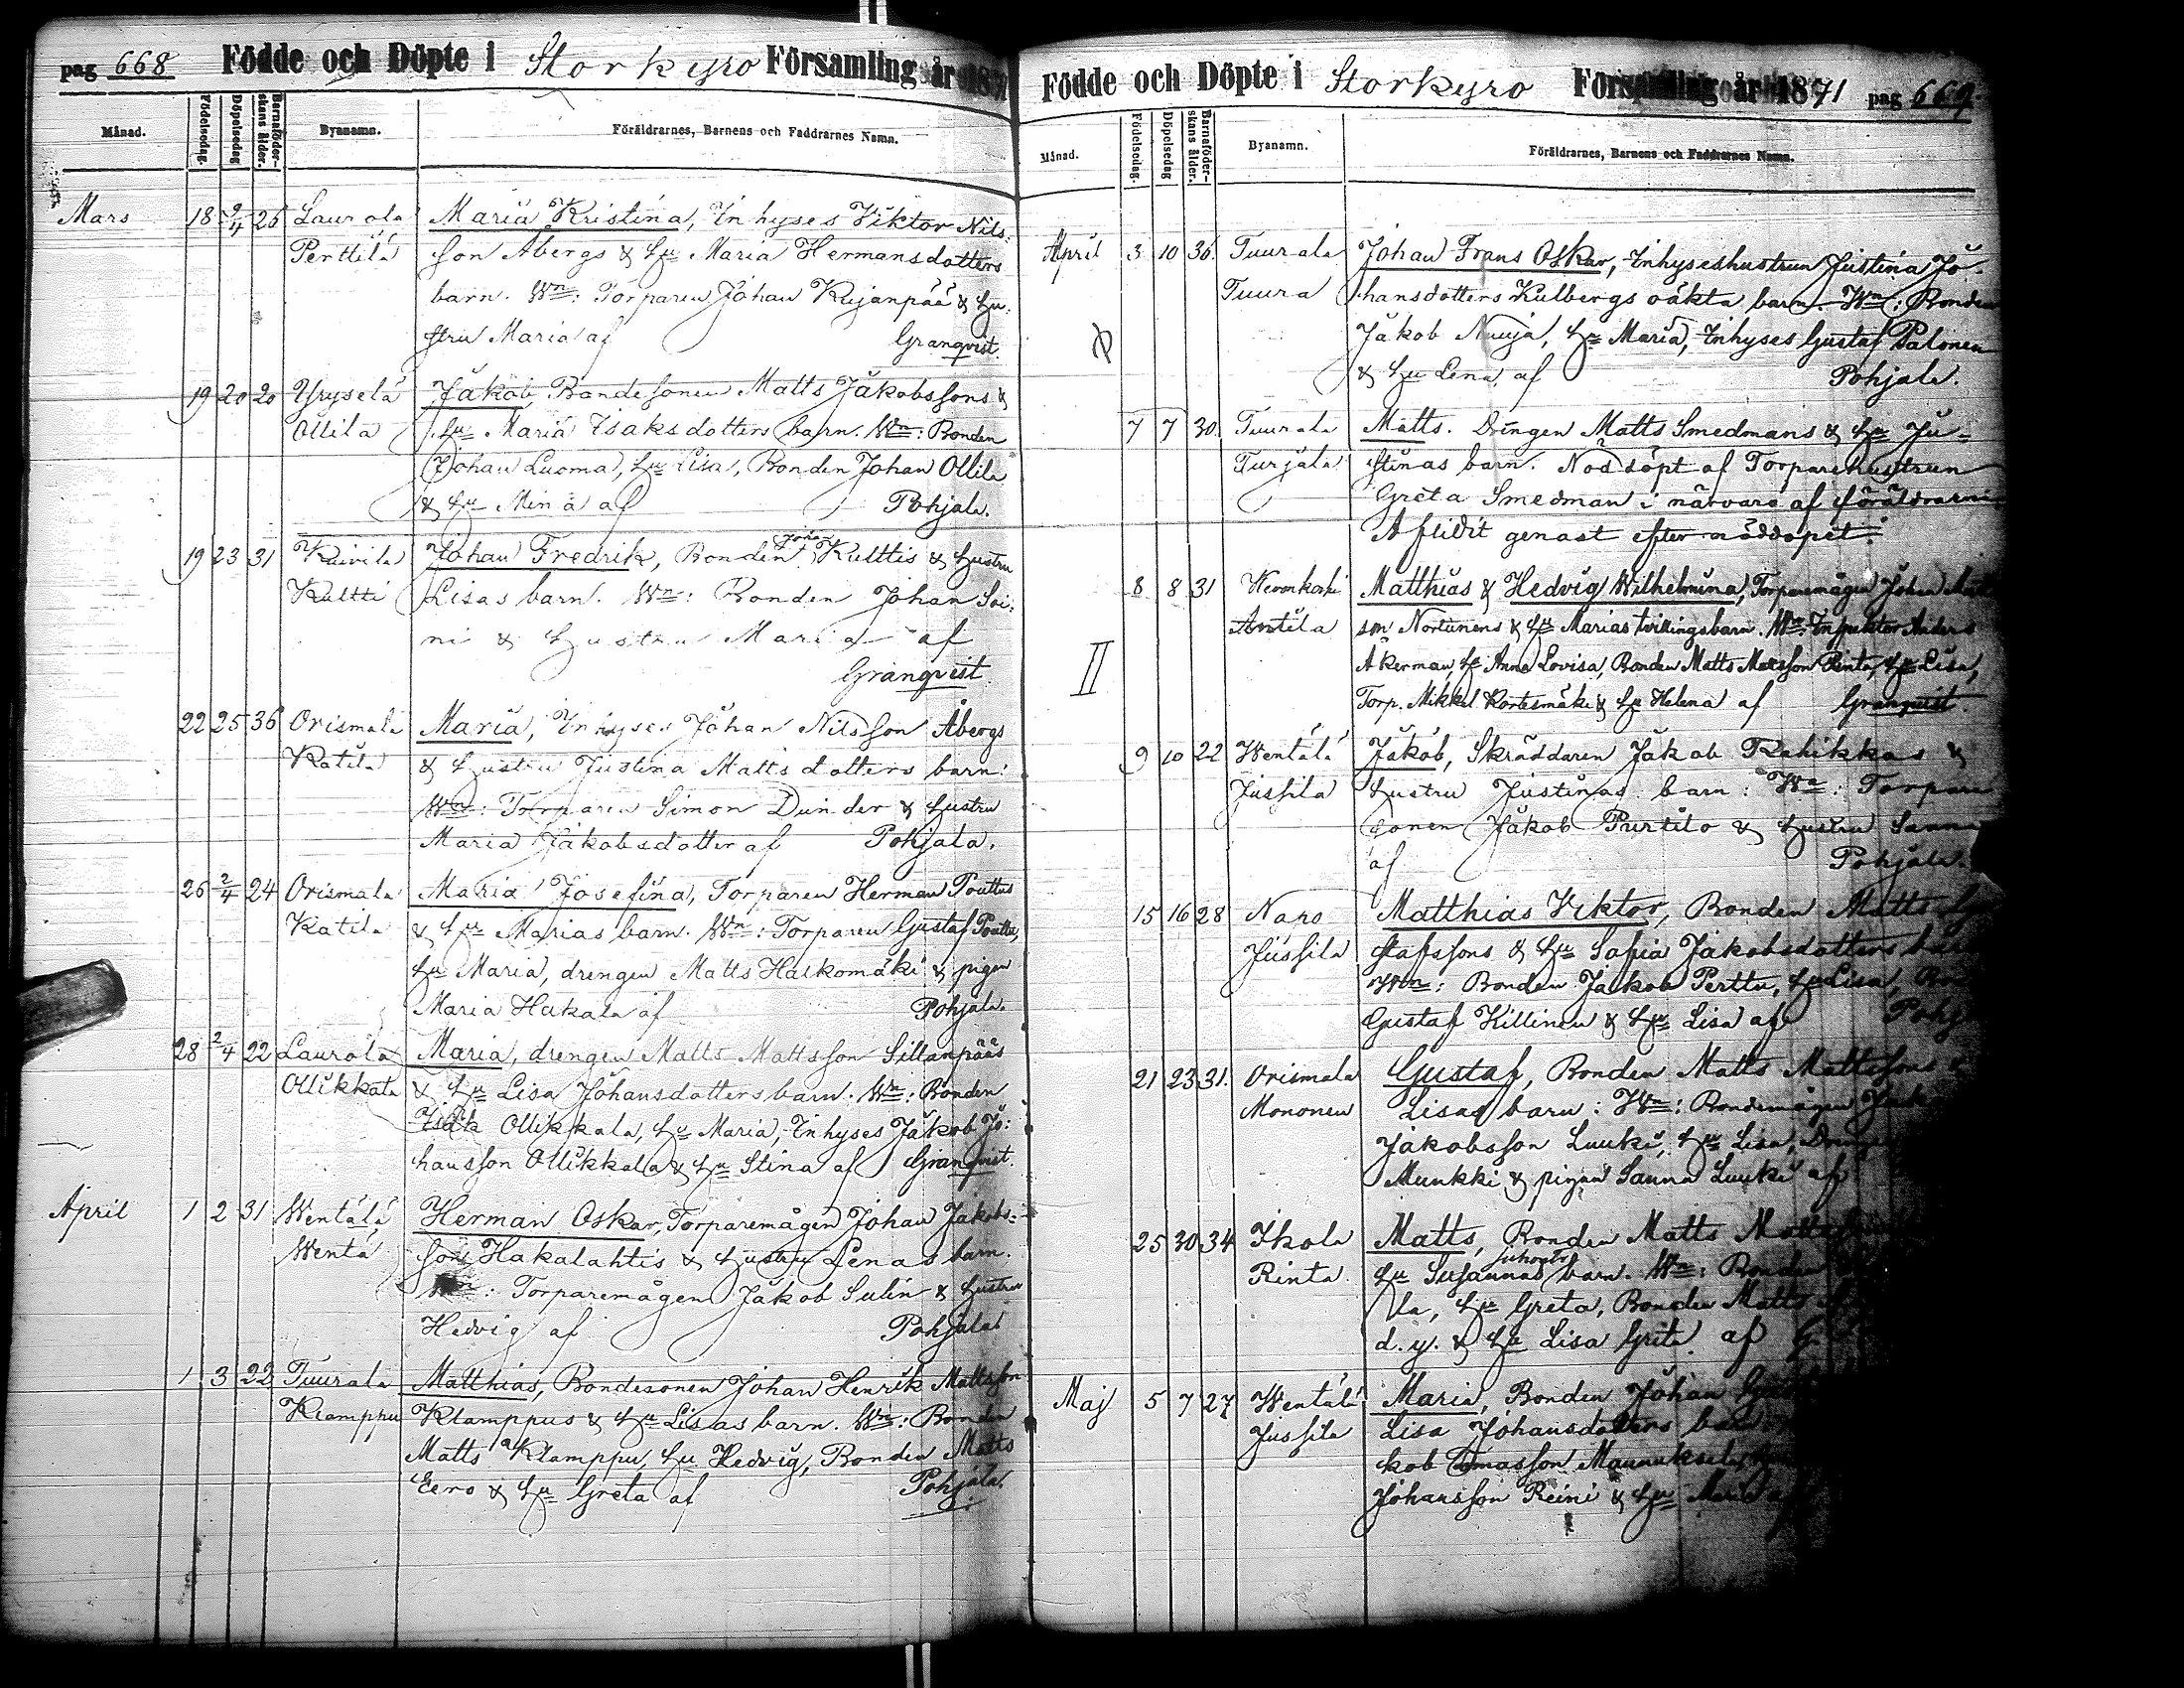 pag 668 Födde och Döpte i Storkyro Församling år 1871
Månad. Födelsedag. Döpelsedag Barnaföderskans ålder. Byanamn. Föräldrarnes, Barnens och Faddrarnes Namn.
Mars 18 2/4 26 Laurola Maria Kristina, Inhyses Viktor Nils=
Perttilä son Åbergs & Hu Maria Hermansdotters
barn. Wn: Torparen Johan Kujanpää & Hu:
stru Maria af Granqvist.
19 20 20 Yryselä Jakob, Bondesonen Matts Jakobssons &
Ollila Hu Maria Isaksdotters barn. Wn: Bonden
Johan Luoma, Hu Lisa, Bonden Johan Ollila
& Hu Mina af Pohjala.
19 23 31 Kuivila Johan Fredrik, Bonden Johan Kulttis & Hustru
Kultti Lisas barn. Wn: Bonden Johan Soi:
ni & Hustru Maria af
Granqvist.
22 25 36 Orismala Maria, Inhyses Johan Nilsson Åbergs
Katila & Hustru Justina Mattsdotters barn:
Wn: Torparen Simon Dunder & Hustru
Maria Jakobsdotter af Pohjala.
26 2/4 24 Orismala Maria Josefina, Torparen Herman Pouttus
Katila & Hu Marias barn. Wn: Torparen Gustaf Pouttu,
Hu Maria, drengen Matts Haikomäki & pigan
Maria Hakala af Pohjala.
28 2/4 22 Laurola Maria, drengen Matts Mattsson Sillanpääs
Ollikkala & Hu Lisa Johansdotters barn. Wn: Bonden
Isak Ollikkala, Hu Maria, Inhyses Jakob Jo:
hansson Ollikkala & Hu Stina af Granqvist.
April 1 2 31 Wentälä Herman Oskar, Torparemågen Johan Jakobs=
Wentä sons Hakalahtis & Hustru Lenas barn.
Wn: Torparemågen Jakob Sulin & Hustru
Hedvig af Pohjala
1 3 22 Tuurala Matthias, Bondesonen Johan Henrik Mattsson
Klamppu Klamppus & Hu Lisas barn. Wn: Bonden
Matts Klamppu, Hu Hedvig, Bonden Matts
Eero & Hu Greta af Pohjala.
Födde och Döpte i Storkyro Församling år 1871 pag 669.
Månad. Födelsedag. Döpelsedag Barnaföderskans ålder. Byanamn. Föräldrarnes, Barnens och Faddrarnes Namn.
April 3 10 36 Tuurala Johan Frans Oskar, Inhyseshustrun Justina Jo-
Tuura hansdotters Kulbergs oäkta barn. Wn: Bonden
Jakob Nuuja, Hu Maria, Inhyses Gustaf Palonen
& Hu Lena af Pohjala.
7 7 30 Tuurala Matts. Drängen Matts Smedmans & Hu Ju-
Turjala stinas barn. Nöddöpt af Torparehustrun
Greta Smedman i närvaro af föräldrarne.
Aflidit genast efter nöddopet
8 8 31 Matthias & Hedvig Wilhelmina, Torparemågen Johan
Antila son Nortunens & Hu Marias tvillingsbarn. Wn: Inspektor Anders
II Åkerman, Hu Anna Lovisa, Bonden Matts Matsson Rinta, Hu Lisa,
Torp. Mikkel Kortesmäki & Hu Helena af Granqvist.
9 10 22 Wentälä Jakob, Skräddaren Jakob Rahikkas &
Jussila Hustru Justinas barn: Wn: Torpare
sonen Jakob Purtilo & Hustru Sanna
af Pohjala.
15 16 28 Napo Matthias Viktor, Bonden Matts
Jussila stafssons & Hu Sofia Jakobsdotters
Wn: Bonden Jakob Perttu, Hu Lisa,
Gustaf Killinen & Hu Lisa af
21 23 31. Orismala Gustaf, Bonden Matts Mattssons
Mononen Lisas barn: Wn: Bondemågen
Jakobsson Luuki, Hu Lisa,
Munkki & pigan Sanna Luuki af
25 30 34 Ikola Matts, Bonden Matts
Rinta Hu Susannas barn. Wn: Bonden
la, Hu Greta, Bonden Matts
d.y. & Hu Lisa Grita. af G
Maj 5 7 27 Wentälä Maria, Bonden Johan
Jussila Lisa Johansdotters
kob Tomasson
Johansson Reini & Hu Maria